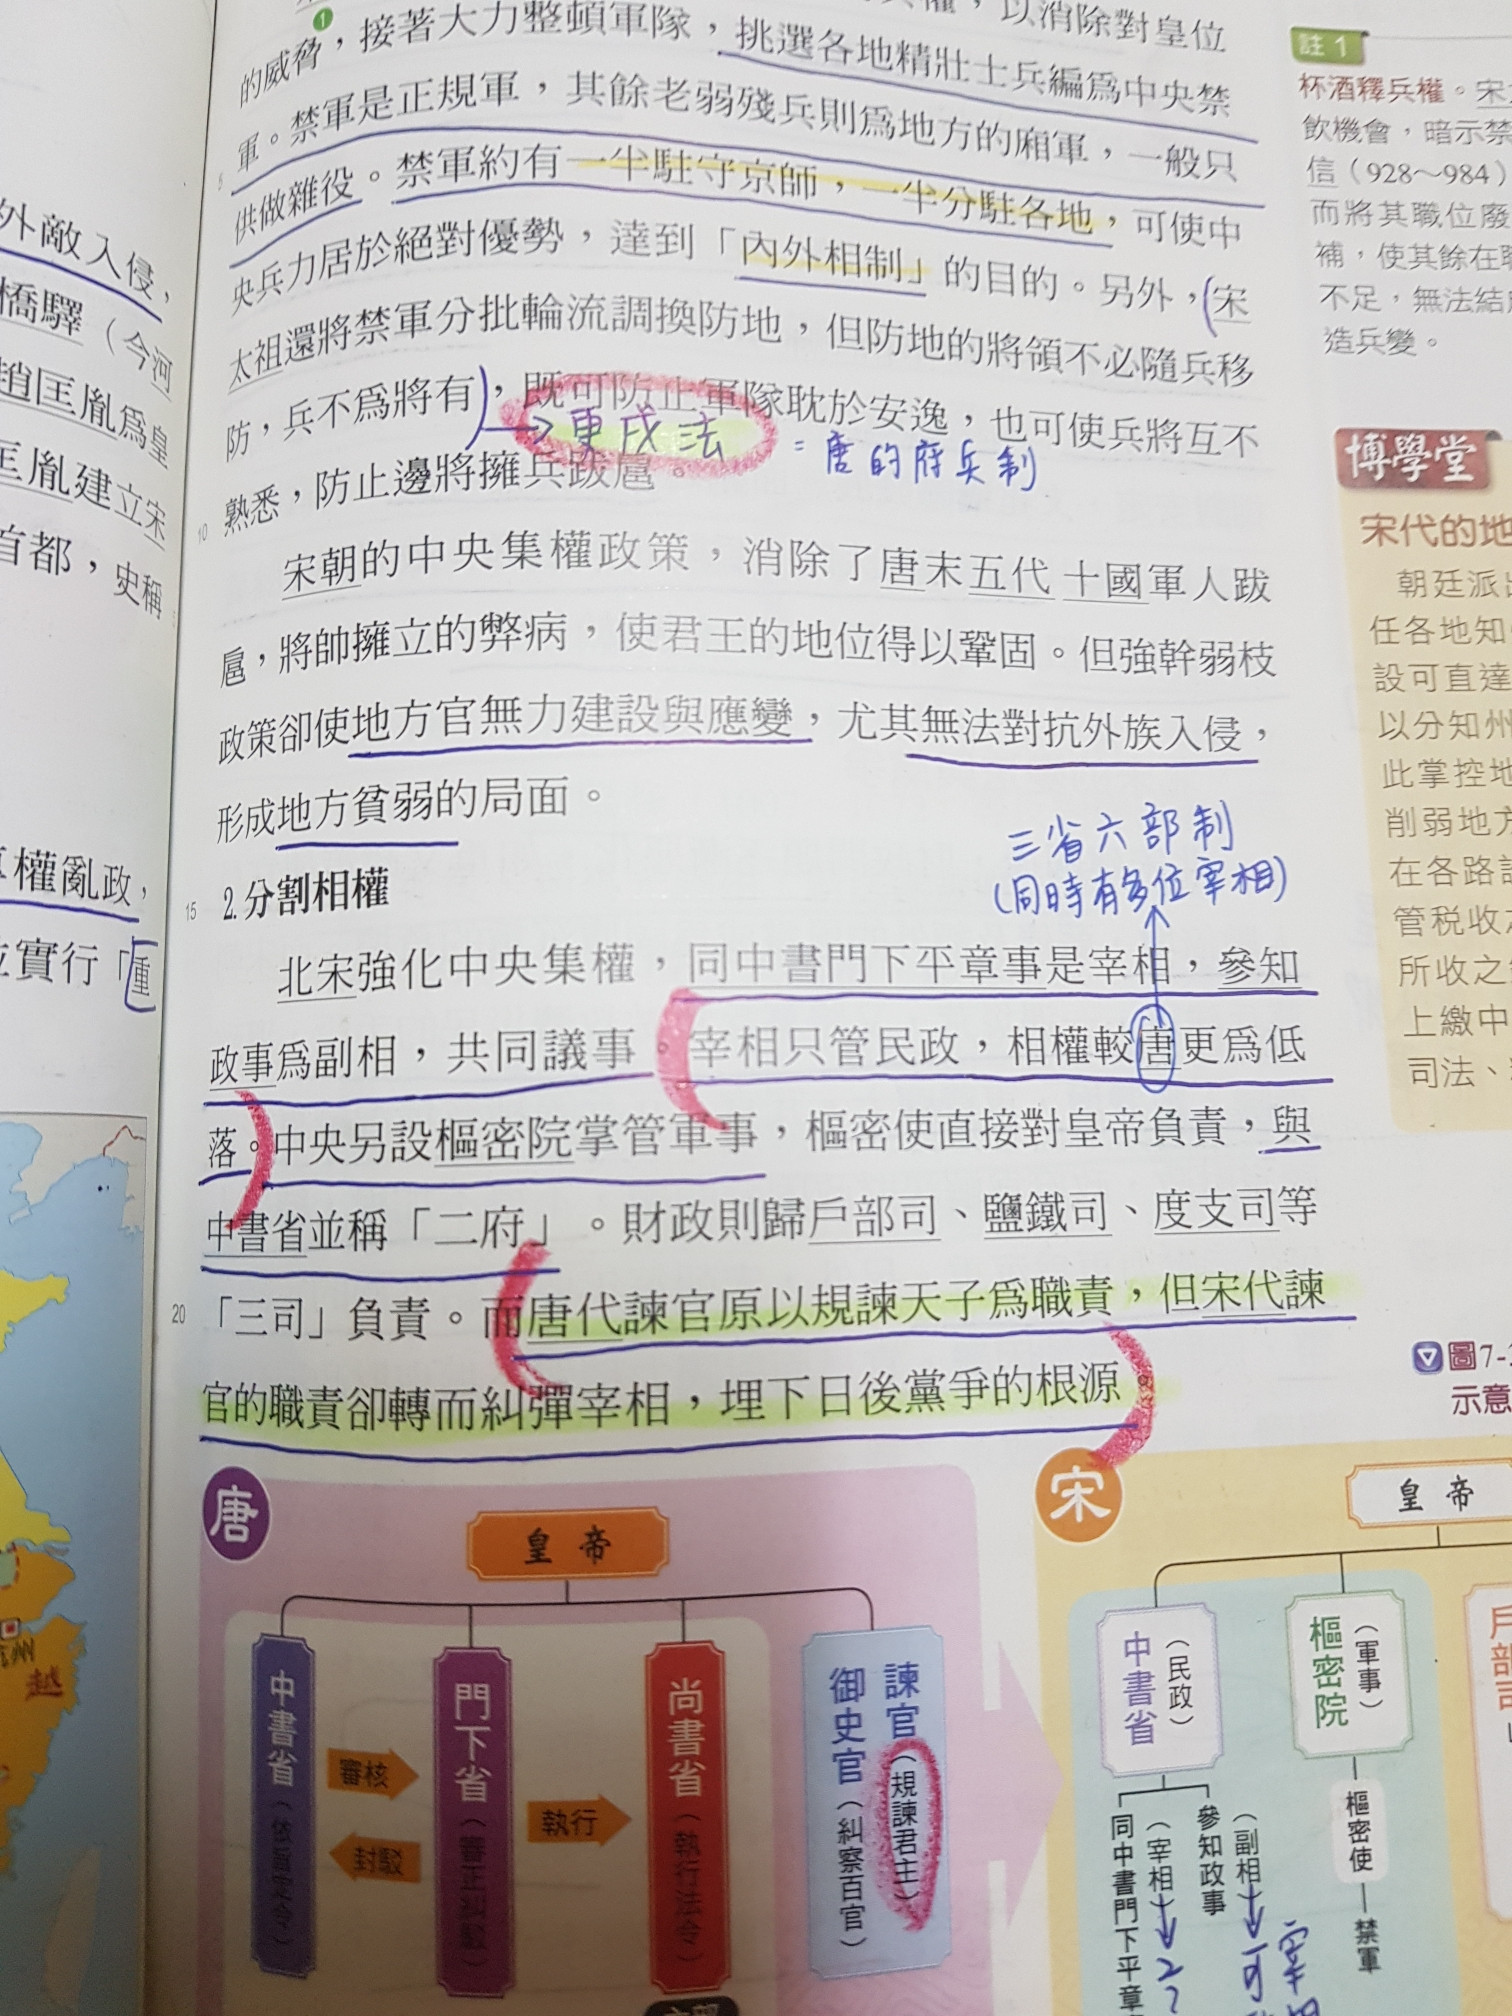 外敵入侵，
橋驛（今河
趙匡胤為皇
匡胤建立宋
首都，史稱
權亂政，
實行「重
1
兵權，以消除對皇位
的威脅，接著大力整頓軍隊，挑選各地精壯士兵編為中央禁
軍。禁軍是正規軍，其餘老弱殘兵則為地方的廂軍，一般只
5
供做雜役。禁軍約有一半駐守京師，一半分駐各地，可使中
央兵力居於絕對優勢，達到「內外相制」的目的。另外，宋
太祖還將禁軍分批輪流調換防地，但防地的將領不必隨兵移
防，兵不為將有，既可防止軍隊耽於安逸，也可使兵將互不
→更戍法
=唐的府兵制
熟悉，防止邊將擁兵跋扈。
10
宋朝的中央集權政策，消除了唐末五代十國軍人跋
扈，將帥擁立的弊病，使君王的地位得以鞏固。但強幹弱枝
政策卻使地方官無力建設與應變，尤其無法對抗外族入侵，
形成地方貧弱的局面。
三省六部制
(同時有多位宰相)
15
2.分割相權
北宋強化中央集權，同中書門下平章事是宰相，參知
政事為副相，共同議事。宰相只管民政，相權較唐更為低
落。中央另設樞密院掌管軍事，樞密使直接對皇帝負責，與
中書省並稱「二府」。財政則歸戶部司、鹽鐵司、度支司等
20
「三司」負責。而唐代諫官原以規諫天子為職責，但宋代諫
官的職責卻轉而糾彈宰相，埋下日後黨爭的根源。
註1
杯酒釋兵權。宋
飲機會，暗示禁
信（928～984）
而將其職位廢
補，使其餘在職
不足，無法結
造兵變。
博學堂
宋代的地
朝廷派
任各地知
設可直達
以分知州
此掌控地
削弱地方
在各路設
管稅收
所收之
上繳中
司法、
圖7-
示意
唐
皇帝
中書省
門下省
尚書省（執行法令）
審核
封駁
執行
諫官（規諫君主）
御史官（糾察百官）
宋
皇帝
中書省（民政）
樞密院（軍事）
戶部司
同中書門下平章
（宰相）
參知政事
（副相）
樞密使
禁軍
越
州